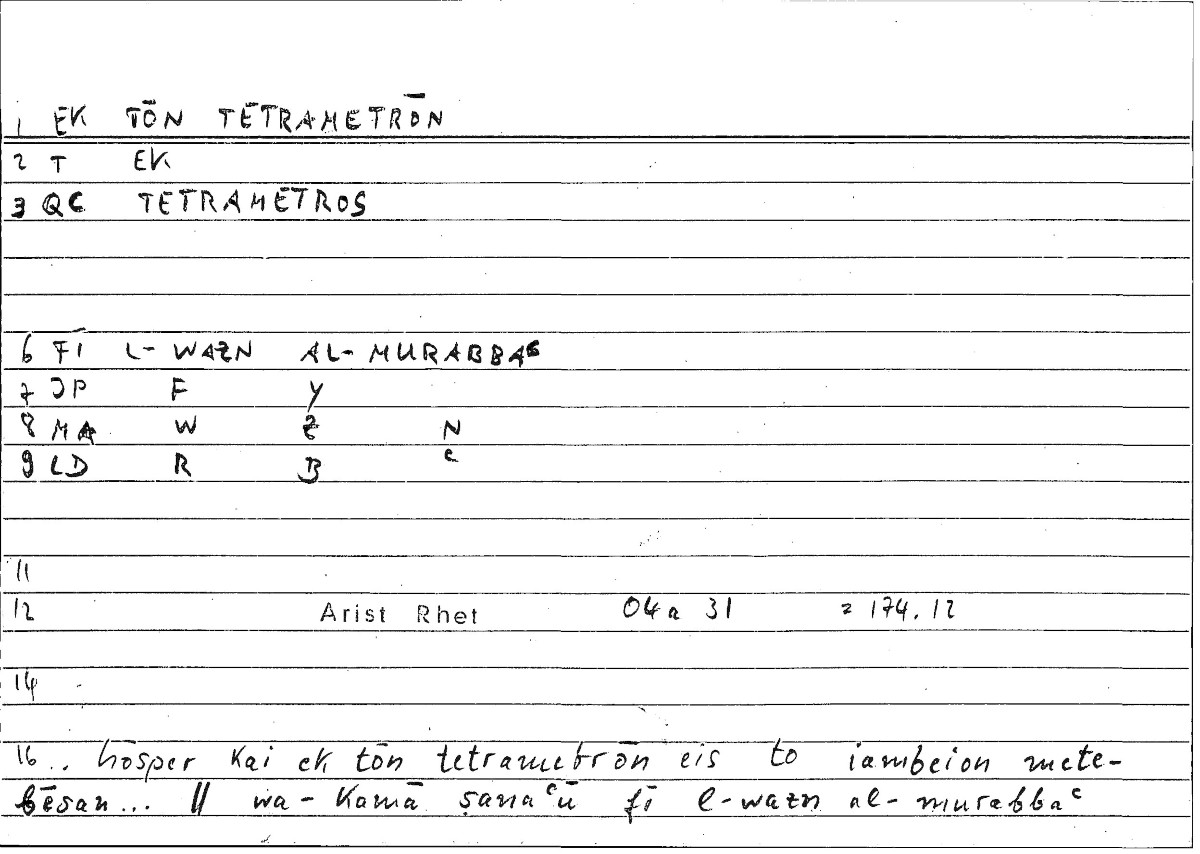 1 EK TŌN TETRAMETRŌN
2 T EK
3 QC TETRAMETROS
6 FĪ L- WAZN AL- MURABBAʿ
7 JP F Y
8 MA W Z N
9 LD R B ʿ
11
12 Arist Rhet 04a 31 = 174.12
14
16 .. hōsper kai ek tōn tetrametrōn eis to iambeion mete-
bēsan... // wa-kamā ṣanaʿū fī l-wazn al-murabbaʿ